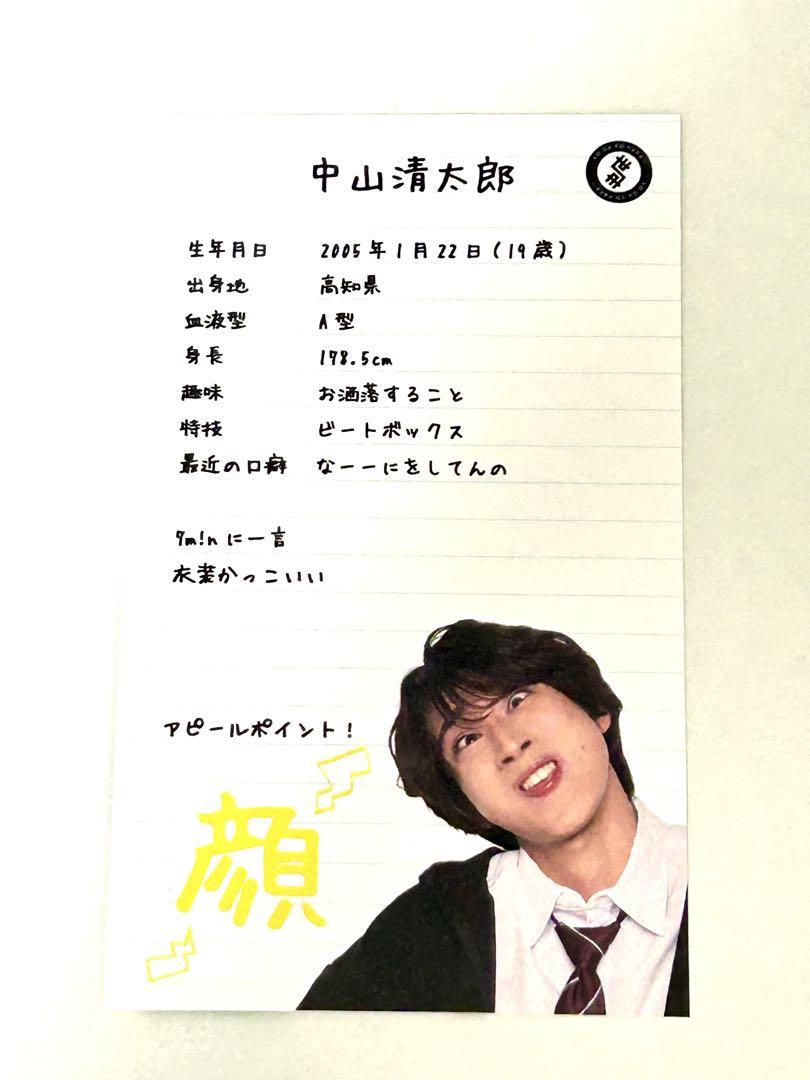 中山清太郎
世世
生年月日 2005年1月22日(19歳)
出身地 高知県
血液型 A型
身長 178.5cm
趣味 お洒落すること
特技 ビートボックス
最近の口癖 なーーにをしてんの
7m!nに一言
衣装かっこいい
アピールポイント!
顔